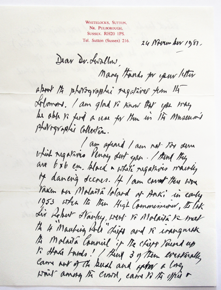 24 November 1981.
Dear Dr.
Many thanks for your letter
about the photographic negatives from the
Solomons. I am glad to know that you may
be able to find a use for them in the Museum's
photographic collection.
I am afraid I am not too sure
which negatives Penny sent you. I think they
are 6x6 cm. black & white negatives
of dancing scenes. If I am correct they were
taken on Malaita Island at Auki in early
1953 when the then High Commissioner, the late
Sir Robert Stanley, went to Malaita to meet
the Marching Rule chiefs and to inaugurate
the Malaita Council if the chiefs turned up
to State
came out of the bush and after a long
wait among the crowd, came to the